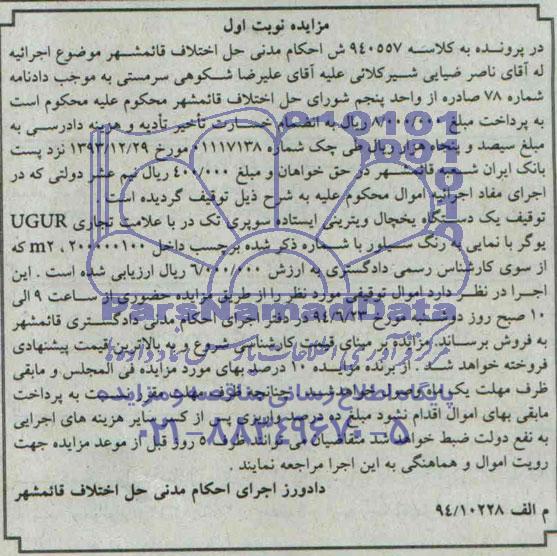 مزایده نوبت اول
در پرونده به کلاسه ۹۴۰۵۵۷ ش احکام مدنی حل اختلاف قائمشهر موضوع اجرائیه
له آقای ناصر ضیایی شیرکلائی علیه آقای علیرضا شکوهی سرمستی به موجب دادنامه
شماره ۷۸ صادره از واحد پنجم شورای حل اختلاف قائمشهر محکوم علیه محکوم است
به پرداخت مبلغ ۸۷۰۰۰/۰۰۰ ریال به انضمام خسارت تأخیر تأدیه و هزینه دادرسی به
مبلغ سیصد و پنجاه هزار ریال طی چک شماره ۰۱۱۱۷۱۳۸ مورخ ۱۳۹۳/۱۲/۲۹ نزد پست
بانک ایران شعبه قائمشهر در حق خواهان و مبلغ ۴۰۰/۰۰۰ ریال نیم عشر دولتی که در
اجرای مفاد اجرائیه اموال محکوم علیه به شرح ذیل توقیف گردیده است .
توقیف یک دستگاه یخچال ویترینی ایستاده سوپری تک در با علامت تجاری UGUR
یوگر با نمایی به رنگ سیلور با شماره ذکر شده برچسب داخل ۲۰۰۰۰۰۱۰۰ ، m۲ که
از سوی کارشناس رسمی دادگستری به ارزش ۶/۰۰۰/۰۰۰ ریال ارزیابی شده است . این
اجرا در نظر دارد اموال توقیفی مورد نظر را از طریق مزایده حضوری از ساعت ۹ الی
۱۰ صبح روز دوشنبه مورخ ۹۴/۶/۲۳ در دفتر اجرای احکام مدنی دادگستری قائمشهر
به فروش برساند. مزایده بر مبنای قیمت کارشناسی شروع و به بالاترین قیمت پیشنهادی
فروخته خواهد شد . از برنده مزایده ۱۰ درصد بهای مورد مزایده فی المجلس و مابقی
ظرف مهلت یک ماه وصول خواهد شد . چنانچه ظرف مهلت مقرر نسبت به پرداخت
مابقی بهای اموال اقدام نشود مبلغ ده درصد واریزی پس از کسر سایر هزینه های اجرایی
به نفع دولت ضبط خواهد شد متقاضیان می توانند ظرف ۵ روز قبل از موعد مزایده جهت
رویت اموال و هماهنگی به این اجرا مراجعه نمایند .
دادورز اجرای احکام مدنی حل اختلاف قائمشهر
م الف ۹۴/۱۰۲۲۸
ParsNamadData
پایگاه اطلاع رسانی مناقصه و مزایده
۰۲۱-۸۸۳۴۹۶۷۰-۵